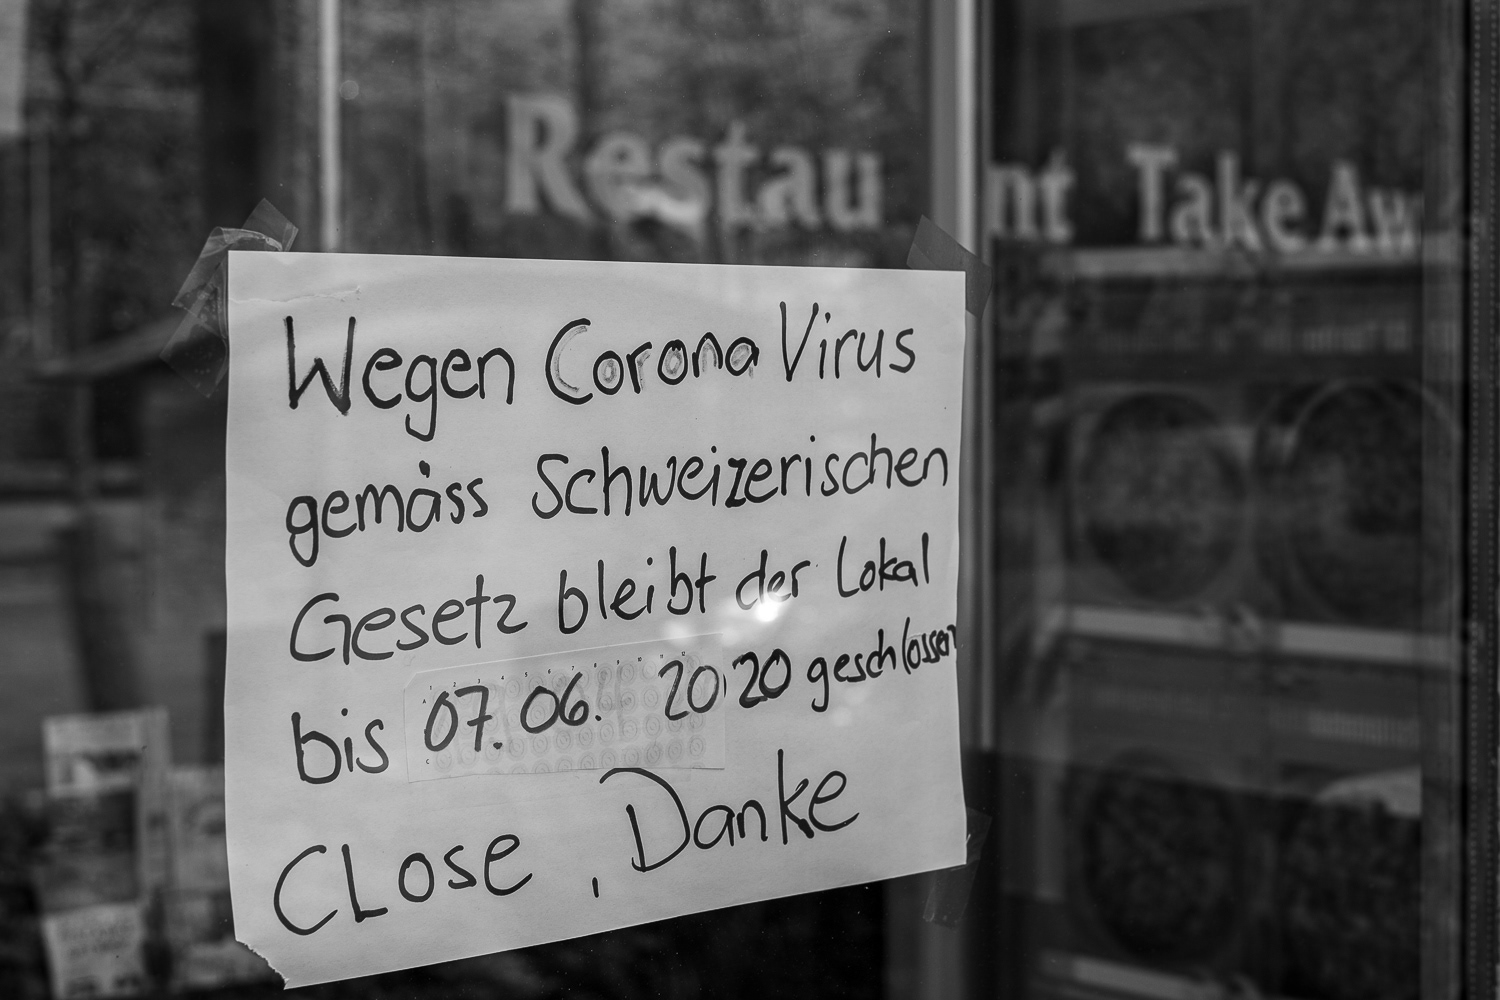 Restau nt Take Aw
Wegen Corona Virus
gemäss Schweizerischen
Gesetz bleibt der Lokal
bis 07.06. 2020 geschlossen
CLose , Danke